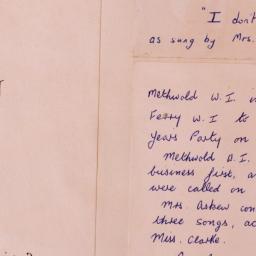 "I don't
as sung by Mrs.
Methwold W.I. in
Ferry W.I to
Years Party on
Methwold W.I.
business first, a
were called on
Mrs. Askew con
three songs, ac
Miss. Clarke.